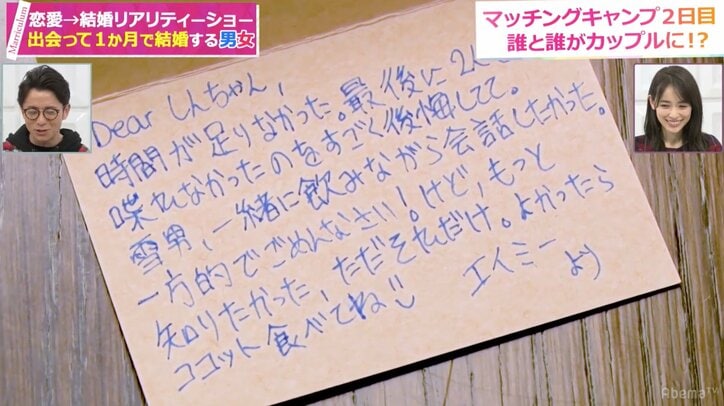 Marriculum
恋愛→結婚リアリティーショー
出会って1か月で結婚する男女
マッチングキャンプ2日目
誰と誰がカップルに!?
Dear しんちゃん,
時間が足りなかった。最後に2人
喋れなかったのをすごく後悔してて。
雪男、一緒に飲みながら会話したかった。
一方的でごめんなさい!けど、もっと
知りたかった、ただそれだけ。よかったら
ココット食べてね
エイミー
より
AbemaTV